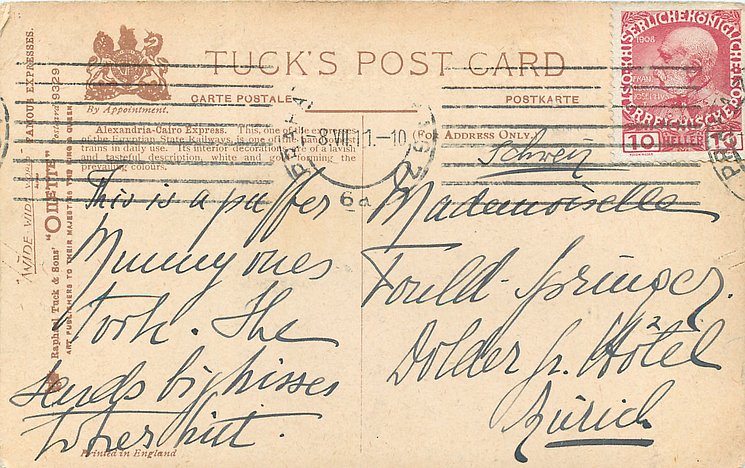 TUCK'S POST CARD
CARTE POSTALE
POSTKARTE
By Appointment.
(For Address Only.)
Alexandria-Cairo Express. This, one of the expresses
of the Egyptian State Railways, is one of the handsomest
trains in daily use. Its interior decorations are of a lavish
and tasteful description, white and gold forming the
prevailing colours.
FAMOUS EXPRESSES.
9329
WIDE WIDE WORLD
Raphael Tuck & Sons' "OILETTE"
ART PUBLISHERS TO THEIR MAJESTIES THE KING & QUEEN
This is a puffer
Mummy ones
took. She
sends big kisses
to her
Printed in England
Schweiz
Mademoiselle
Fould-Springer.
Dolder gr. Hôtel
Zürich
8 VII 11-10
6a
1908
10 HELLER 10